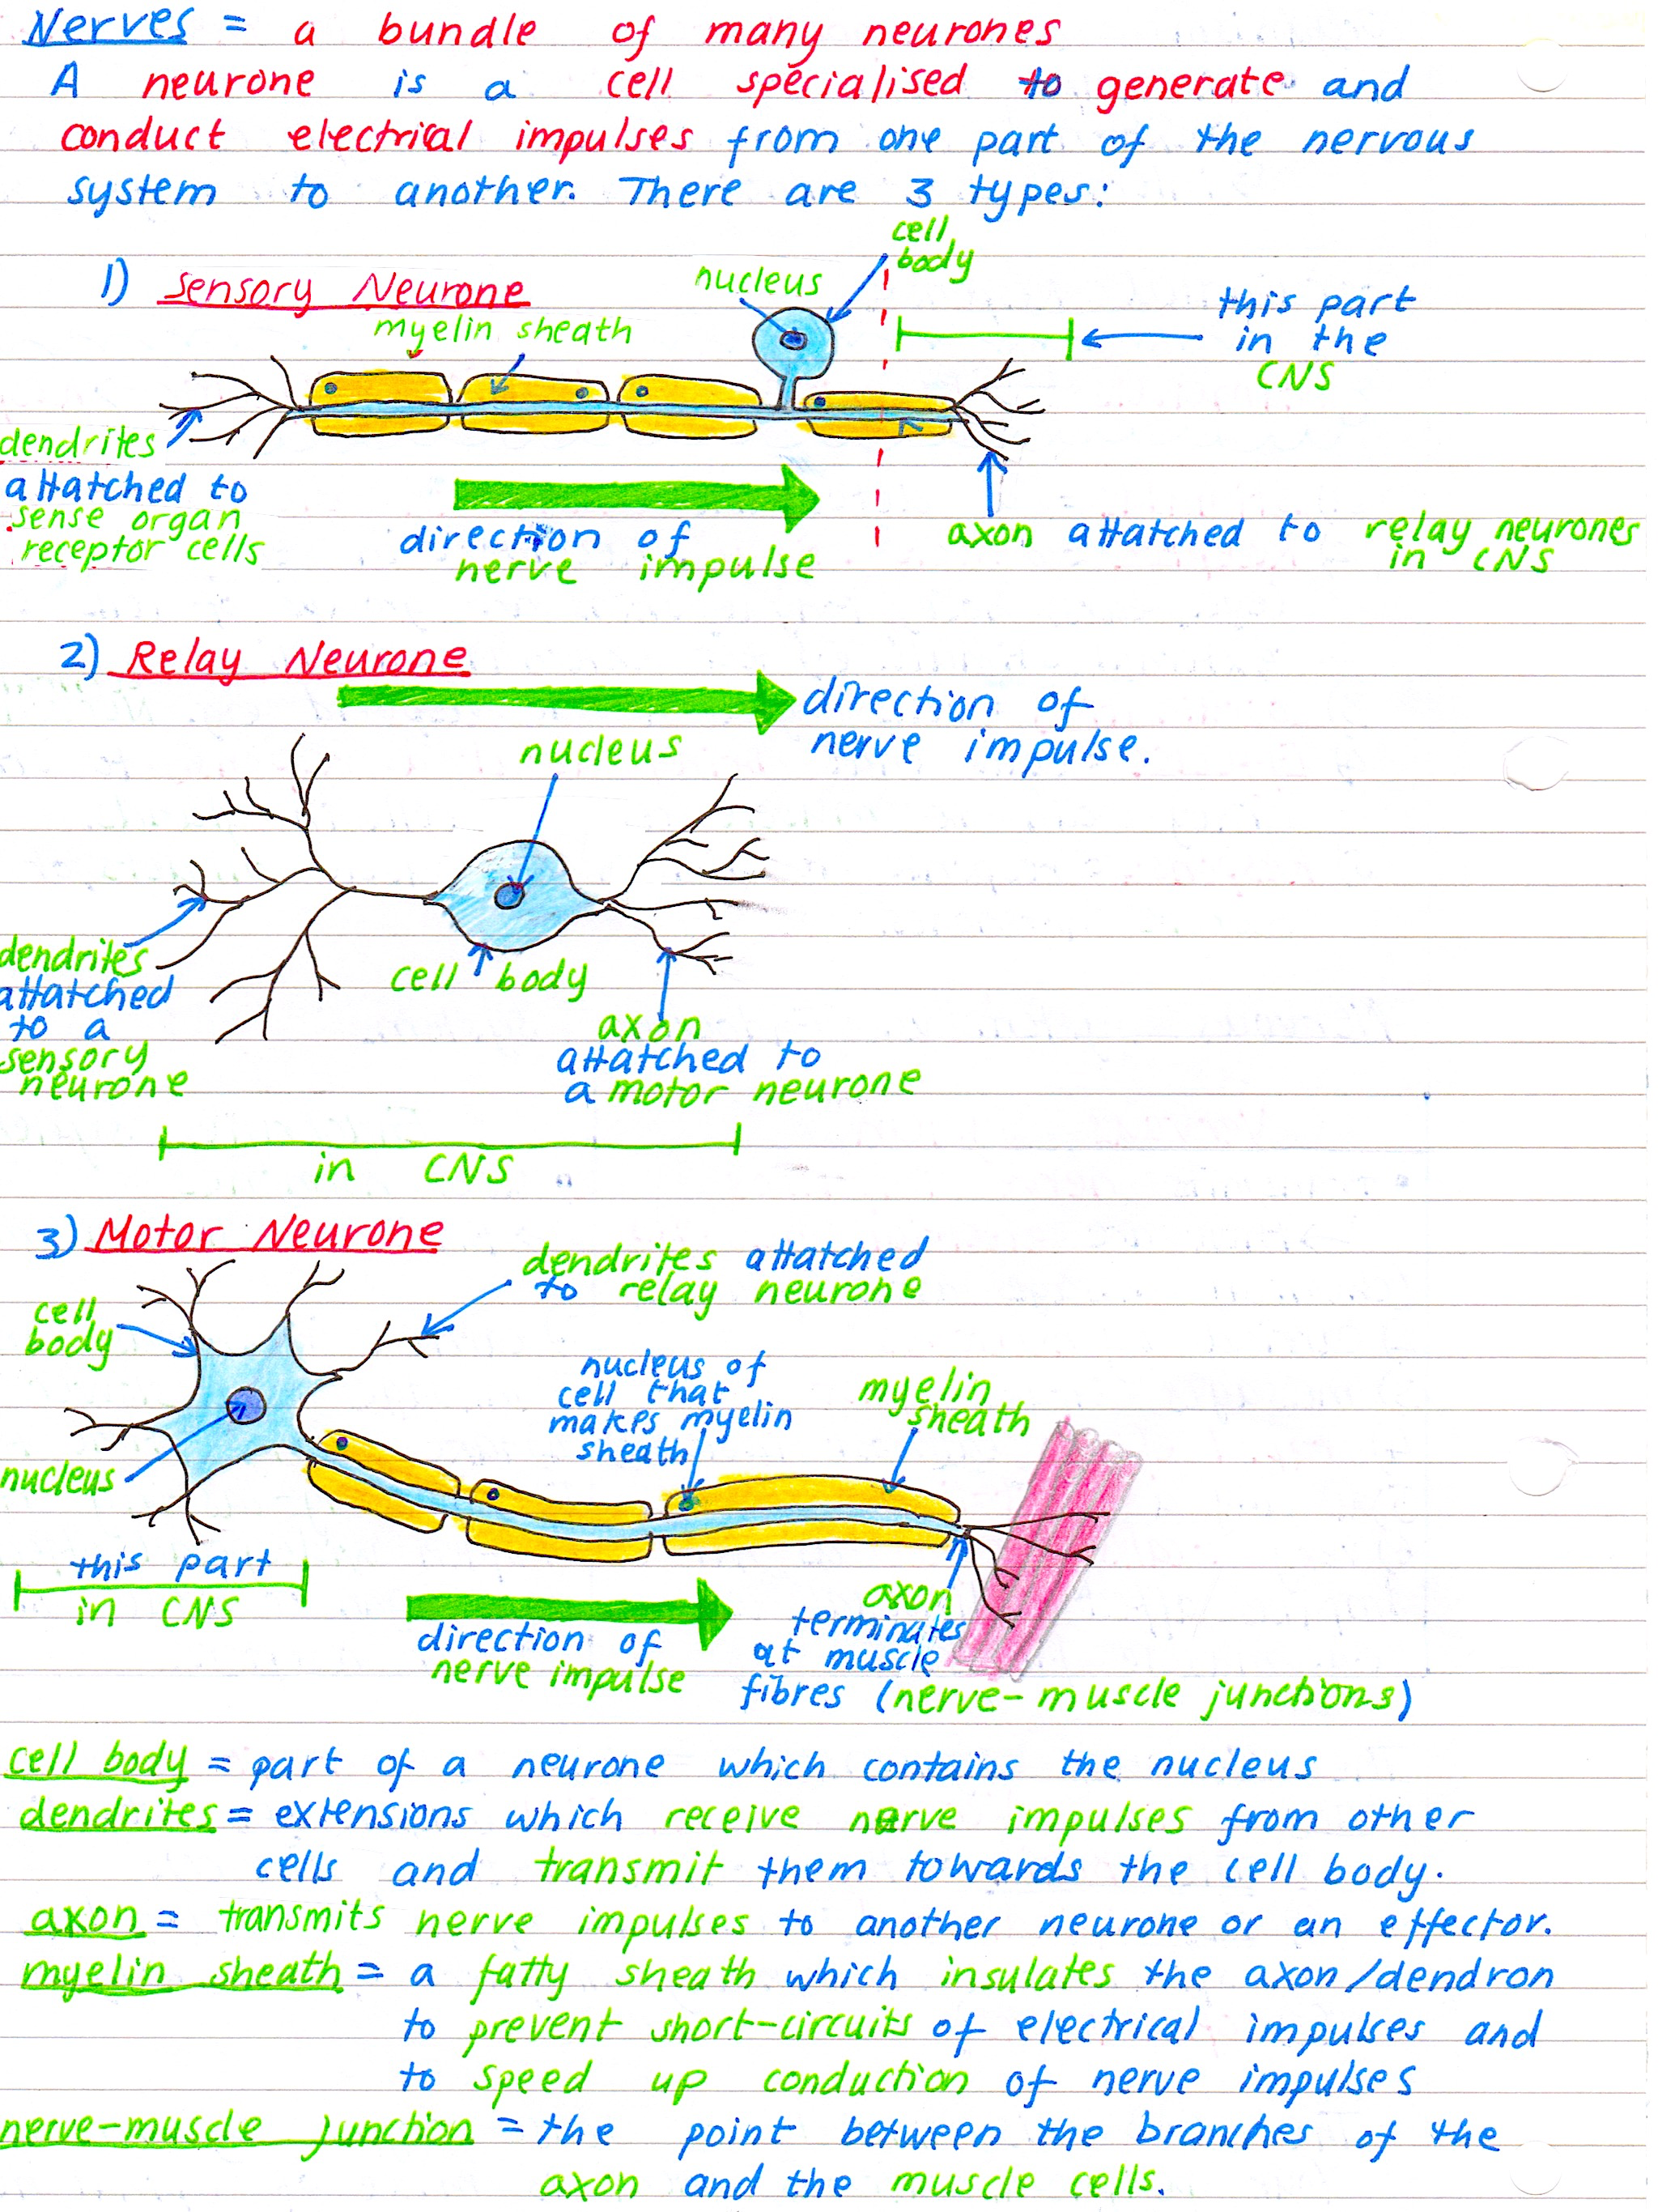 Nerves = a bundle of many neurones
A neurone is a cell specialised to generate and
conduct electrical impulses from one part of the nervous
system to another. There are 3 types:
1) Sensory Neurone
myelin sheath
nucleus
cell
body
this part
in the
CNS
dendrites
attatched to
sense organ
receptor cells
direction of
nerve impulse
axon attatched to relay neurones
in CNS
2) Relay Neurone
direction of
nerve impulse.
nucleus
dendrites
attatched
to a
sensory
neurone
cell body
axon
attatched to
a motor neurone
in CNS
3) Motor Neurone
dendrites attatched
to relay neurone
cell
body
nucleus of
cell that
makes myelin
sheath
myelin
sheath
nucleus
this part
in CNS
direction of
nerve impulse
axon
terminates
at muscle
fibres (nerve-muscle junctions)
cell body = part of a neurone which contains the nucleus
dendrites = extensions which receive nerve impulses from other
cells and transmit them towards the cell body.
axon = transmits nerve impulses to another neurone or an effector.
myelin sheath = a fatty sheath which insulates the axon/dendron
to prevent short-circuits of electrical impulses and
to speed up conduction of nerve impulses
nerve-muscle junction = the point between the branches of the
axon and the muscle cells.